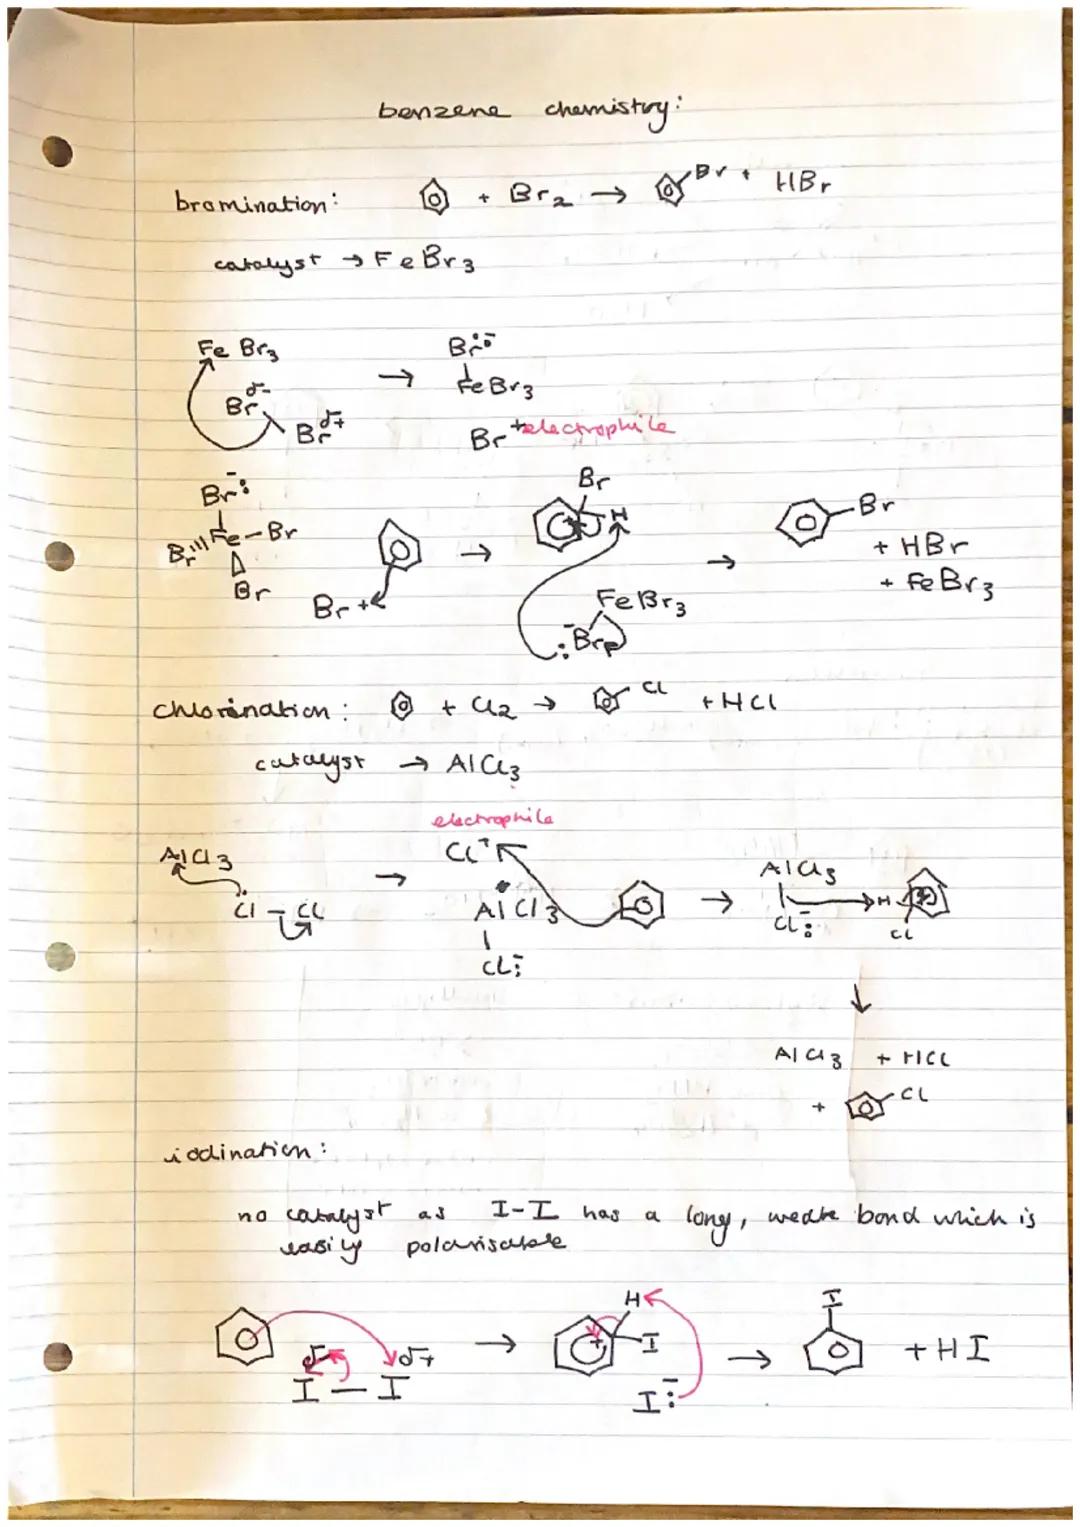 benzene chemistry:
bromination: + Br2 → Br + HBr
catalyst → FeBr3
FeBr3 → Br:-
FeBr3
Br δ-
Br δ+
Br + electrophile
Br:- Br
Br Fe - Br H → Br
Br + HBr
Br + FeBr3 + FeBr3
:Br-
chlorination: + Cl2 → Cl + HCl
catalyst → AlCl3
electrophile
AlCl3 → Cl+
Cl - Cl AlCl3 → AlCl3 H
Cl:- Cl:- Cl
↓
AlCl3 + HCl
+ Cl
iodination:
no catalyst as I-I has a long, weak bond which is
easily polarisable
H I
δ- δ+ → + I → + HI
I - I I:-